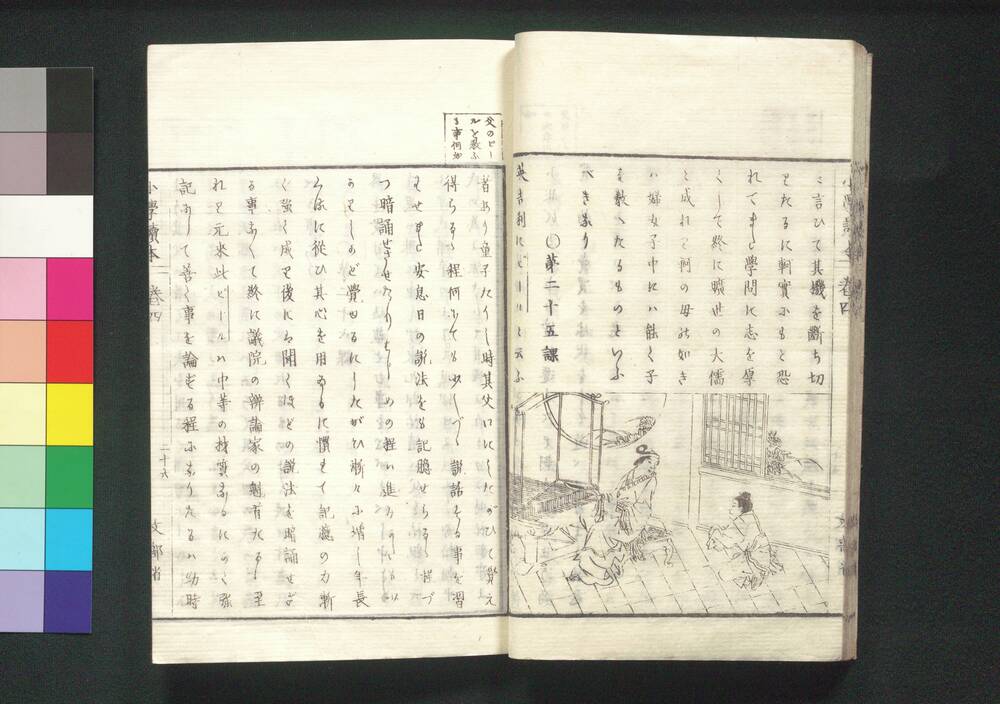 と言ひて其機を斷ち切
りたるに軻實にもと恐
れてまた學問に志を厚
くして終に曠世の大儒
と成れり軻の母の如き
ハ婦女子中にハ能く子
を敎へたるものといふ
べきなり
〇第二十五課
英吉利にピールと云ふ
父のピー
ルを敎ふ
る事何如
者あり童子たりし時其父口にしたがひて
得らるゝ程何にても少しづゝ談話する事を習
はせまた安息日の說法をも記臆せらるゝ
つ暗誦せさせたりはじめの程ハ進
覺ゆるにしたがひ漸々に增し年長
に從ひ其心を用ふるに慣れて記臆の力漸
く強く成り後にハ聞くほどの說法を暗誦せざ
る事なくて終に議院の辨論家の
れり元來此ピールハ中等の材質なるにかく
記して善く事を論ずる程になりたるハ幼時
小學讀本 卷四
二十六
文部省